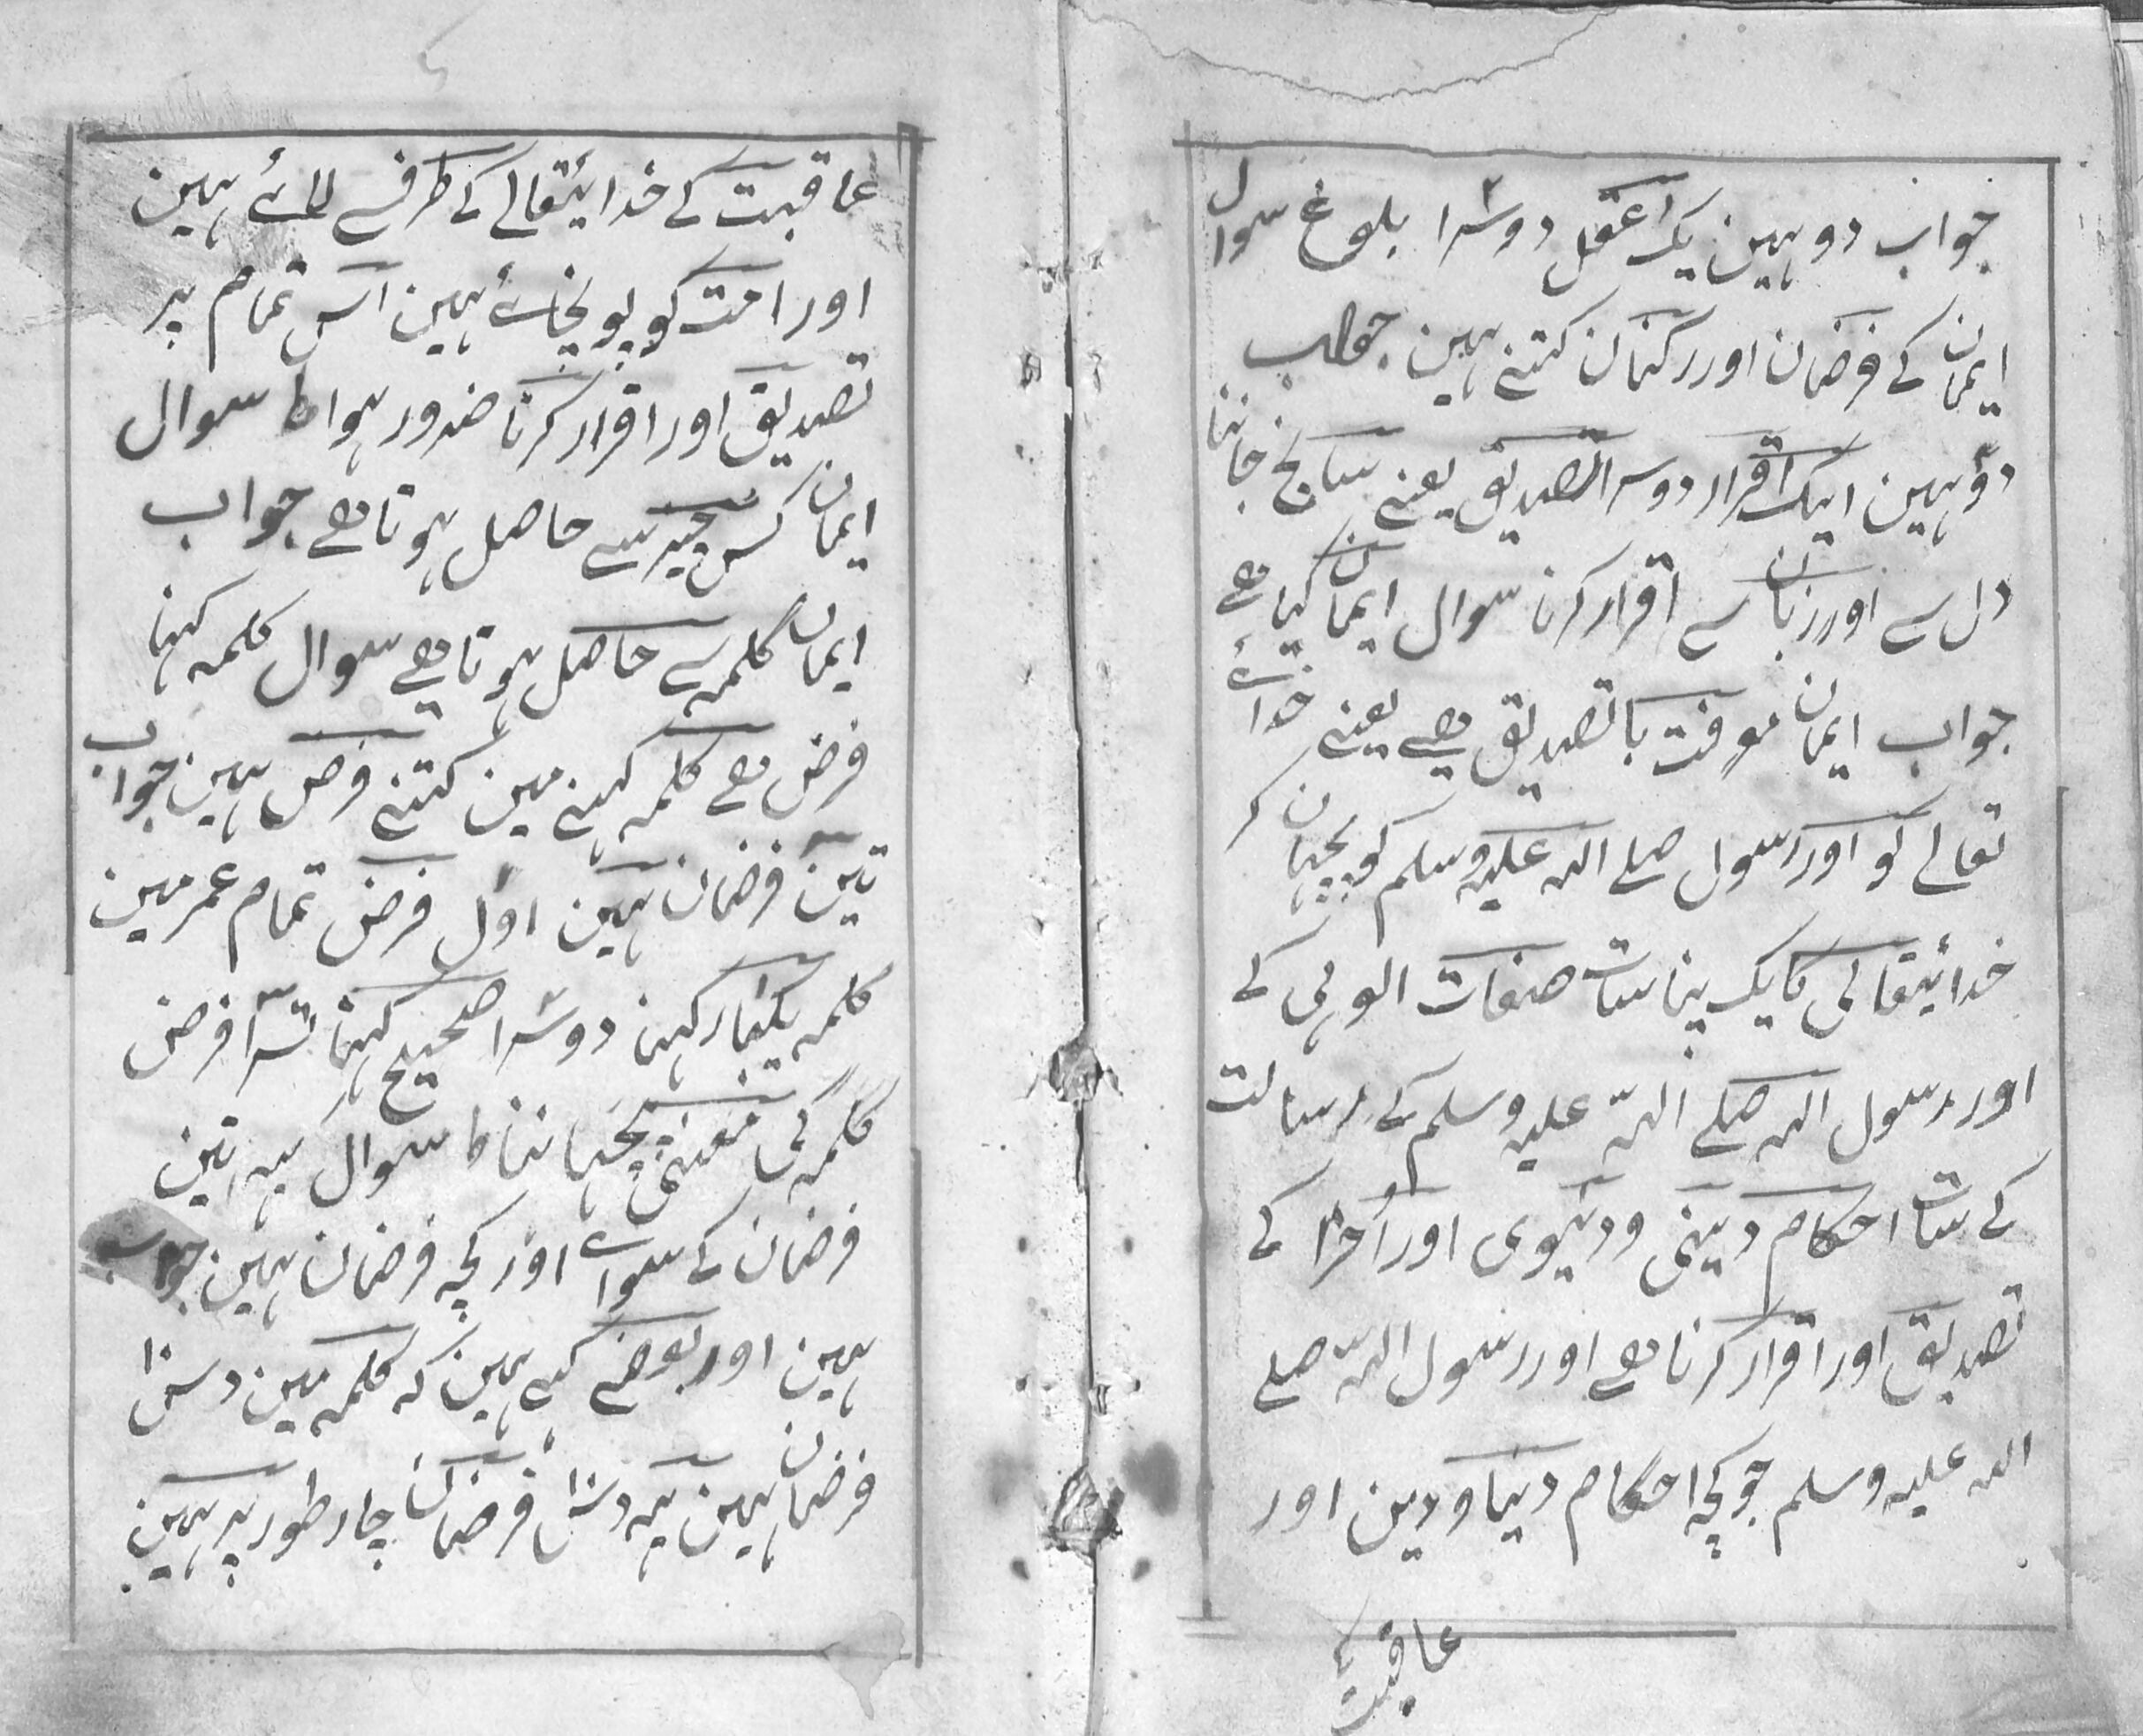 جواب دو ہین یک عقل دوسرا بلوغ سوال
ایمان کے فرضان اور رکنان کتنے ہین جواب
دو ہین ایک اقرار دوسرا تصدیق یعنے ساچ جاننا
دل سے اور زبان سے اقرار کرنا سوال ایمان کیا ھے
جواب ایمان موفت باتصدیق ھے یعنے خداے
تعالے کو اور رسول صلے اللہ علیہ وسلم کو پچھان کر
خدائیتعالی کا یک پنا سات صفات الوہی کے
اور رسول اللہ صلے اللہ علیہ وسلم کے رسالت
کے سات احکام دینی و دنیوی اور اُخرا کے
تصدیق اور اقرار کرنا ھے اور رسول اللہ صلے
اللہ علیہ وسلم جو کچہ احکام دنیا و دین اور
عاقبت کے
عاقبت کے خدائیتعالے کے طرف سے لائے ہین
اور امت کو پونچائے ہین اس تمام پر
تصدیق اور اقرار کرنا ضرور ہوا ط سوال
ایمان کس چیز سے حاصل ہوتا ھے جواب
ایمان کلمہ سے حاصل ہوتا ھے سوال کلمہ کہنا
فرض ھے کلمہ کہنے مین کتنے فرض ہین جواب
تین فرضان ہین اول فرض تمام عمر مین
کلمہ یکبار کہنا دوسرا صحیح کہنا تسرا فرض
کلمہ کی معنی پچھاننا ط سوال یہہ تین
فرضان کے سواے اور کچہ فرضان ہین جواب
ہین اور بعضے کہے ہین کہ کلمہ مین دس
فرضان ہین یہہ دس فرضان چار طور پر ہین